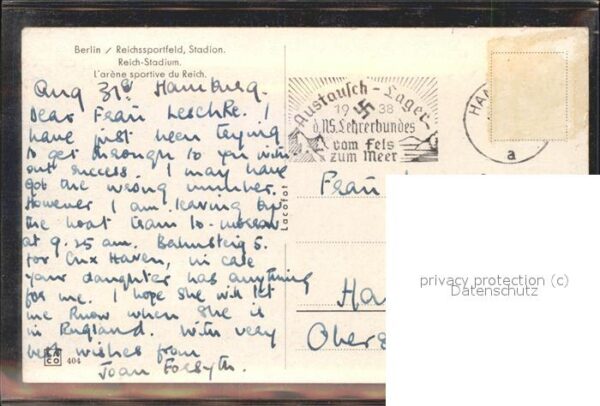 Berlin / Reichssportfeld, Stadion.
Reich-Stadium.
L'arène sportive du Reich.
Aug 31st Hamburg.
Dear Frau Leschke. I
have just been trying
to get through to you with
out success. I may have
got the wrong number.
However I am leaving by
the boat train to-morrow
at 9.25 am. Bahnsteig 5.
for Cux Haven, in case
your daughter has anything
for me. I hope she will let
me know when she is
in England. With very
best wishes from
Joan Forsyth.
404
Lacofot
Austausch-Lager
1938
d. NS. Lehrerbundes
vom Fels
zum Meer
HA
a
Frau
Ha
Obers
privacy protection (c)
Datenschutz